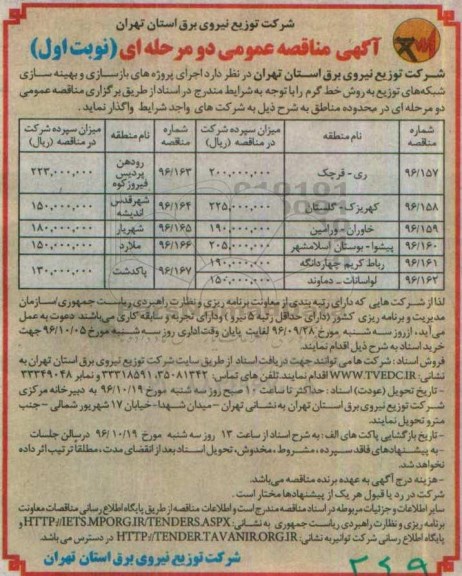 شرکت توزیع نیروی برق استان تهران
آگهی مناقصه عمومی دو مرحله ای (نوبت اول)
شرکت توزیع نیروی برق استان تهران در نظر دارد اجرای پروژه های بازسازی و بهینه سازی
شبکه‌های توزیع به روش خط گرم را با توجه به شرایط مندرج در اسناد از طریق برگزاری مناقصه عمومی
دو مرحله ای در محدوده مناطق به شرح ذیل به شرکت های واجد شرایط واگذار نماید.
شماره مناقصه نام منطقه میزان سپرده شرکت در مناقصه (ریال) شماره مناقصه نام منطقه میزان سپرده شرکت در مناقصه (ریال)
۹۶/۱۵۷ ری - قرچک ۲۰۰,۰۰۰,۰۰۰ ۹۶/۱۶۳ رودهن پردیس فیروزکوه ۲۲۳,۰۰۰,۰۰۰
۹۶/۱۵۸ کهریزک - گلستان ۲۲۵,۰۰۰,۰۰۰ ۹۶/۱۶۴ شهرقدس اندیشه ۱۵۰,۰۰۰,۰۰۰
۹۶/۱۵۹ خاوران - ورامین ۱۹۰,۰۰۰,۰۰۰ ۹۶/۱۶۵ شهریار ۱۸۰,۰۰۰,۰۰۰
۹۶/۱۶۰ پیشوا - بوستان اسلامشهر ۲۰۵,۰۰۰,۰۰۰ ۹۶/۱۶۶ ملارد ۱۵۰,۰۰۰,۰۰۰
۹۶/۱۶۱ رباط کریم چهاردانگه ۱۹۰,۰۰۰,۰۰۰ ۹۶/۱۶۷ پاکدشت ۱۳۰,۰۰۰,۰۰۰
۹۶/۱۶۲ لواسانات - دماوند ۱۵۰,۰۰۰,۰۰۰
لذا از شرکت هایی که دارای رتبه بندی از معاونت برنامه ریزی و نظارت راهبردی ریاست جمهوری/سازمان
مدیریت و برنامه ریزی کشور (دارای حداقل رتبه ۵ نیرو) و دارای تجربه و سابقه کاری می‌باشند دعوت به عمل
می‌آید، از روز سه شنبه مورخ ۹۶/۰۹/۲۸ لغایت پایان وقت اداری روز سه شنبه مورخ ۹۶/۱۰/۰۵ جهت
خرید اسناد به شرح ذیل اقدام نمایند.
فروش اسناد: شرکت ها می توانند جهت دریافت اسناد از طریق سایت شرکت توزیع نیروی برق استان تهران به
نشانی: WWW.TVEDC.IR اقدام نمایند تلفن های تماس: ۸۱۳۴۲-۰۳۵، ۳۳۳۱۸۵۹۱ و نمابر ۳۳۳۴۹۰۴۸
- تاریخ تحویل (عودت) اسناد: حداکثر تا ساعت ۱۰ صبح روز سه شنبه مورخ ۹۶/۱۰/۱۹ به دبیرخانه مرکزی
شرکت توزیع نیروی برق استان تهران به نشانی تهران - میدان شهدا - خیابان ۱۷ شهریور شمالی - جنب
مترو تحویل نمایند.
- تاریخ بازگشایی پاکت های الف: به شرح اسناد از ساعت ۱۳ روز سه شنبه مورخ ۹۶/۱۰/۱۹ در سالن جلسات
- به پیشنهادهای فاقد سپرده، مشروط، مخدوش، تحویل اسناد بعد از انقضای مدت، مطلقاً ترتیب اثر داده
نخواهد شد.
- هزینه درج آگهی به عهده برنده مناقصه می‌باشد.
شرکت در رد یا قبول هر یک از پیشنهادها مختار است.
سایر اطلاعات و جزئیات مربوطه در اسناد مناقصه مندرج است و اطلاعات مناقصه از طریق پایگاه اطلاع رسانی مناقصات معاونت
برنامه ریزی و نظارت راهبردی ریاست جمهوری به نشانی: HTTP://IETS.MPORG.IR/TENDERS.ASPX و
پایگاه اطلاع رسانی شرکت توانیر به نشانی: HTTP://TENDER.TAVANIR.ORG.IR در دسترس می باشد.
شرکت توزیع نیروی برق استان تهران
۳۴۹